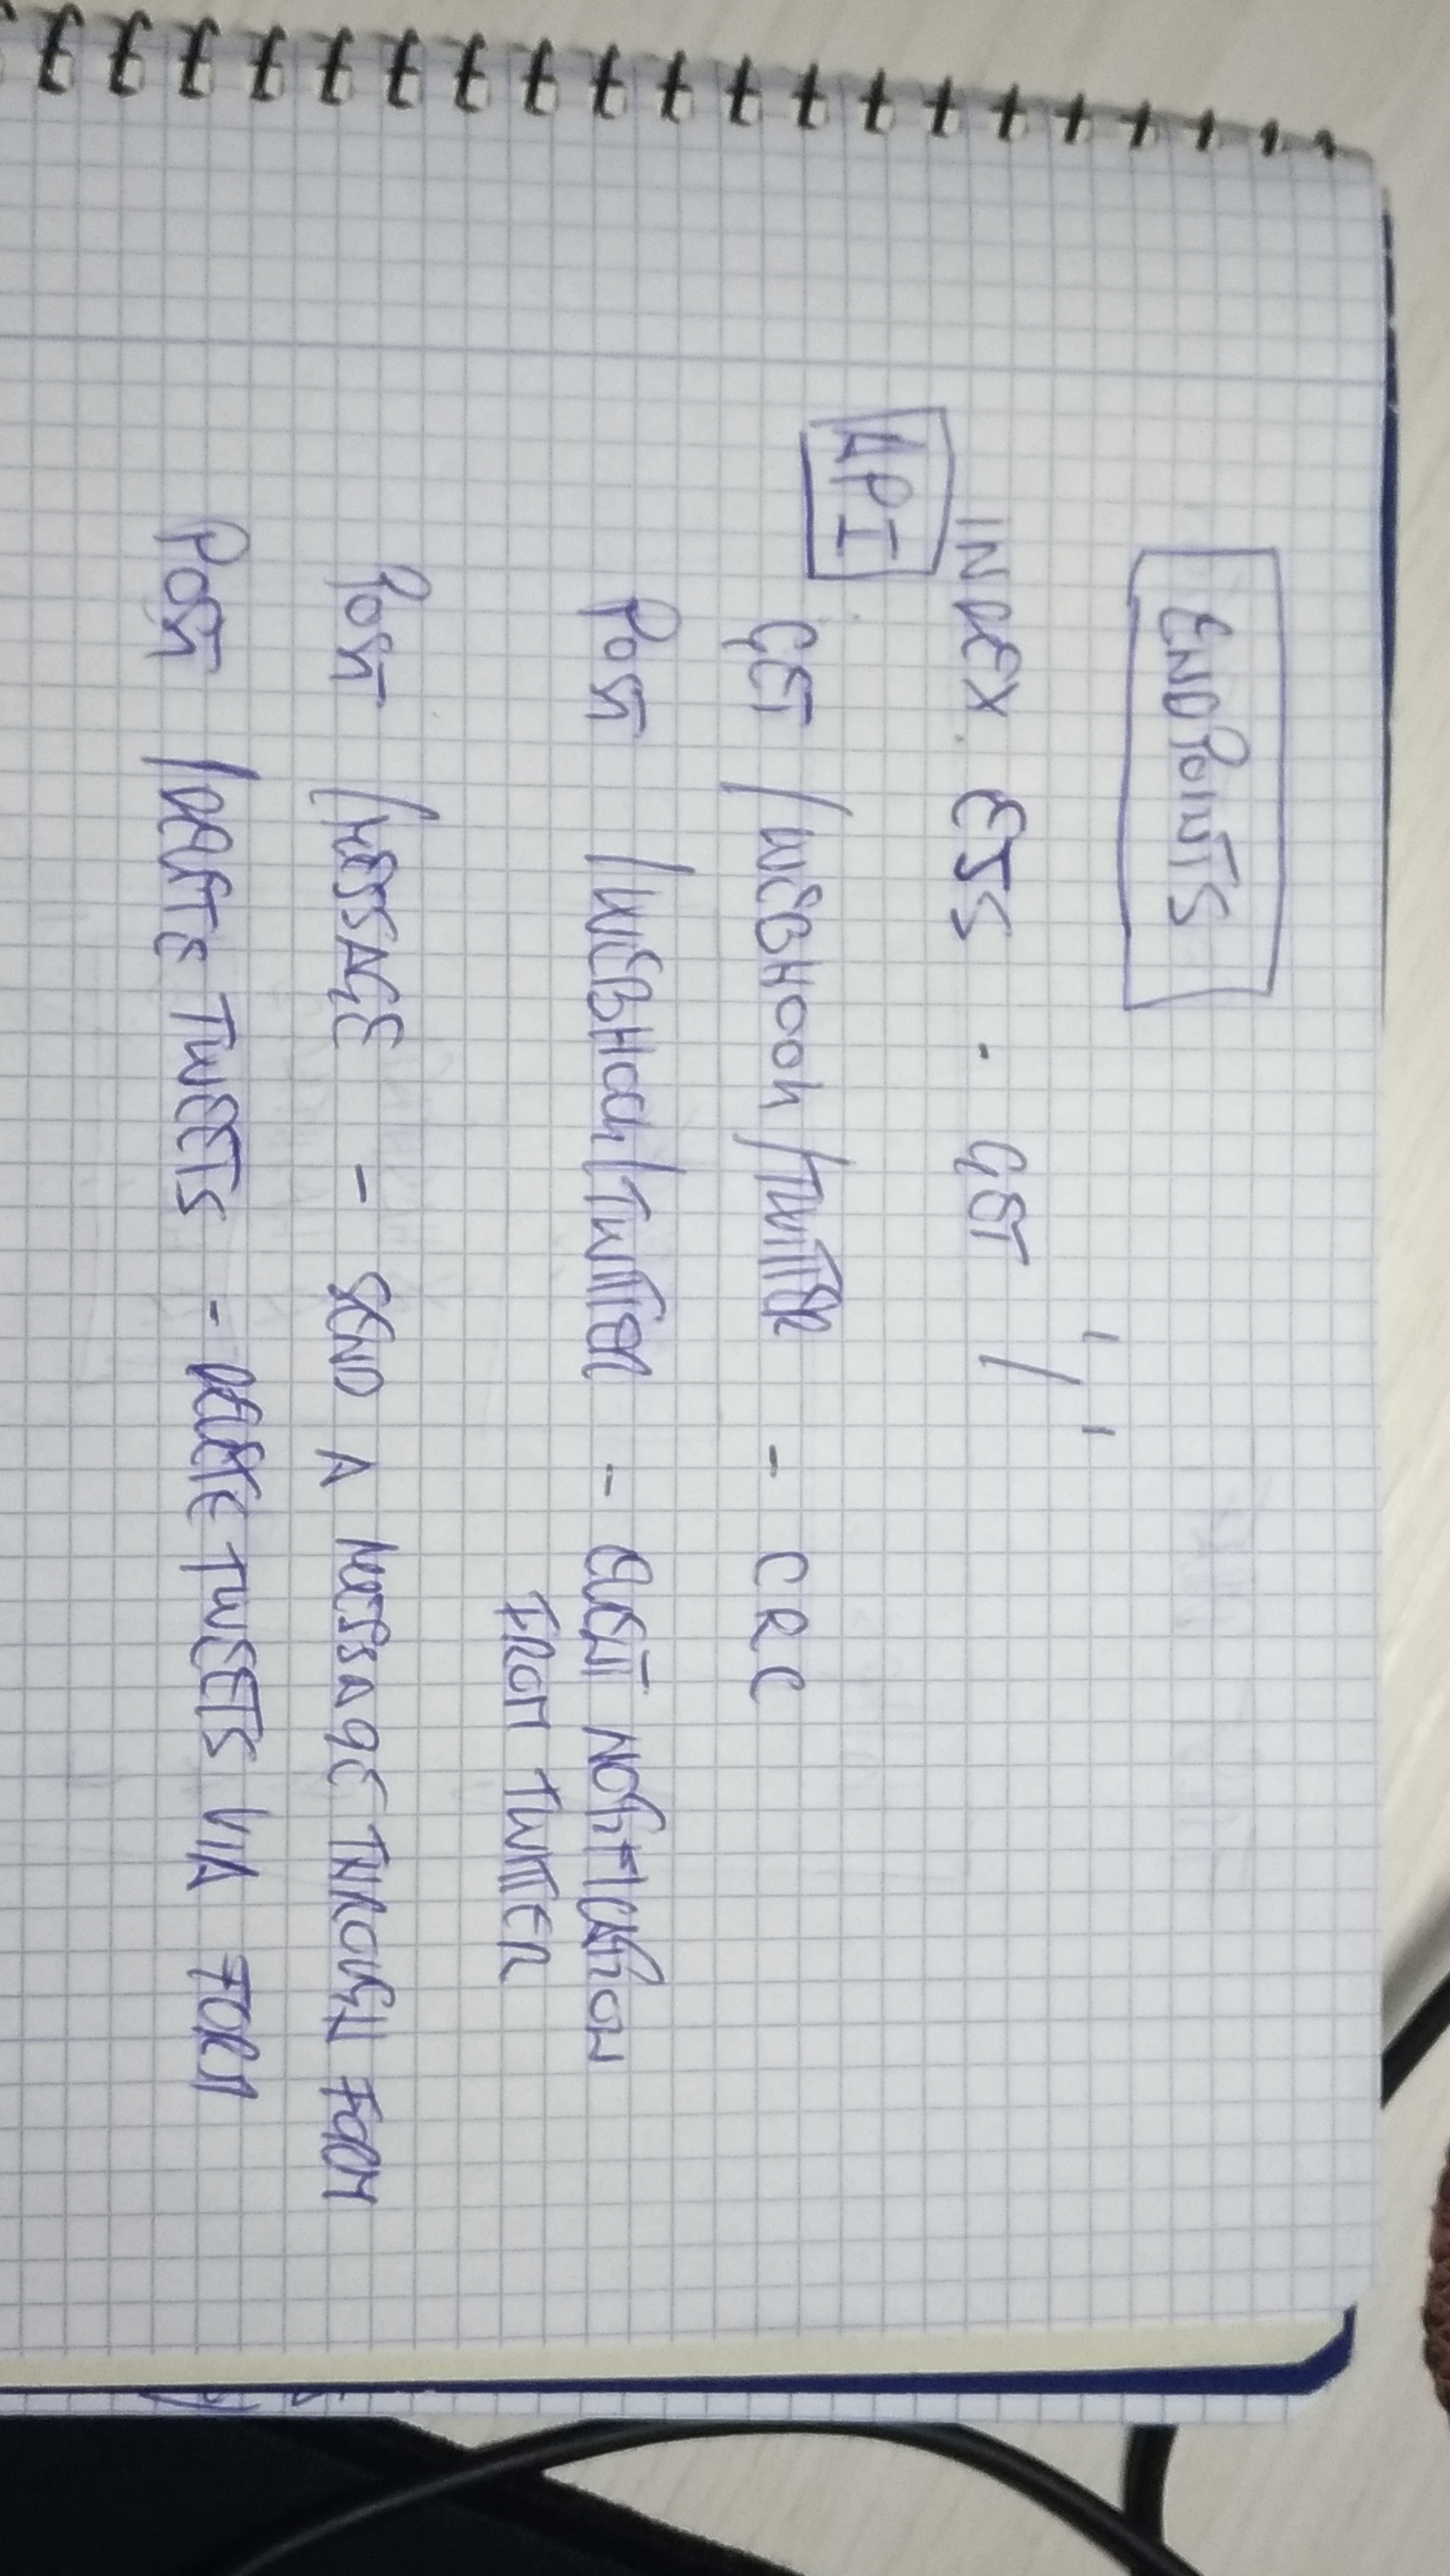 ENDPOINTS
INDEX. EJS - GET '/'
API
GET /WEBHOOK/TWITTER - CRC
POST /WEBHOOK/TWITTER - EVENT NOTIFICATION
FROM TWITTER
POST /MESSAGE - SEND A MESSAGE THROUGH FORM
POST /DELETE TWEETS - DELETE TWEETS VIA FORM